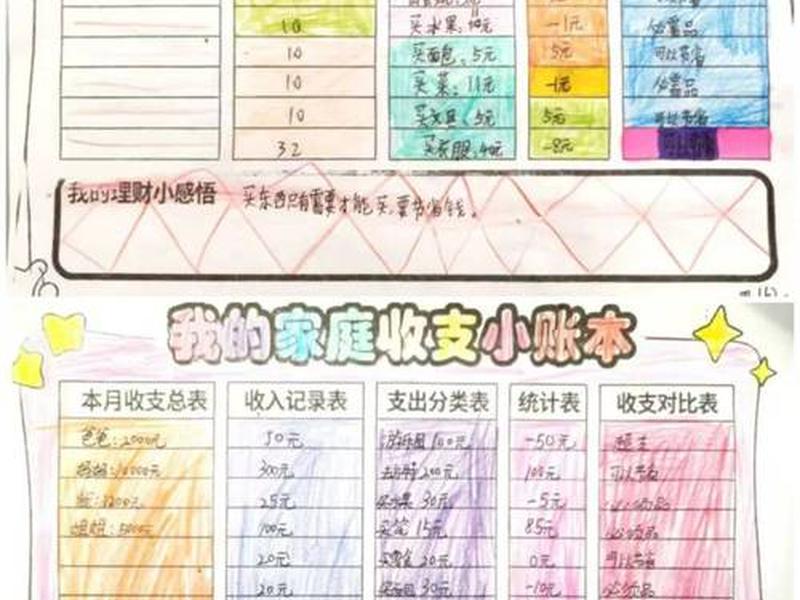 10 买水果:10元 -1元 必需品
10 买面包:5元 5元 可以节省
10 买菜:11元 -1元 必需品
10 买文具:5元 5元 可以节省
32 买衣服:40元 -8元
我的理财小感悟 买东西只有需要才能买,要节省钱。
我的家庭收支小账本
本月收支总表 收入记录表 支出分类表 统计表 收支对比表
爸爸:2000元 50元 游乐园100元 -50元 超支
妈妈:10000元 300元 200元 100元 可以节省
1200元 25元 买水果 30元 -5元 必须品
姐姐:5000元 100元 15元 85元 必须品
20元 买零食 20元 0元 可以节省
20元 30元 -10元 必须品